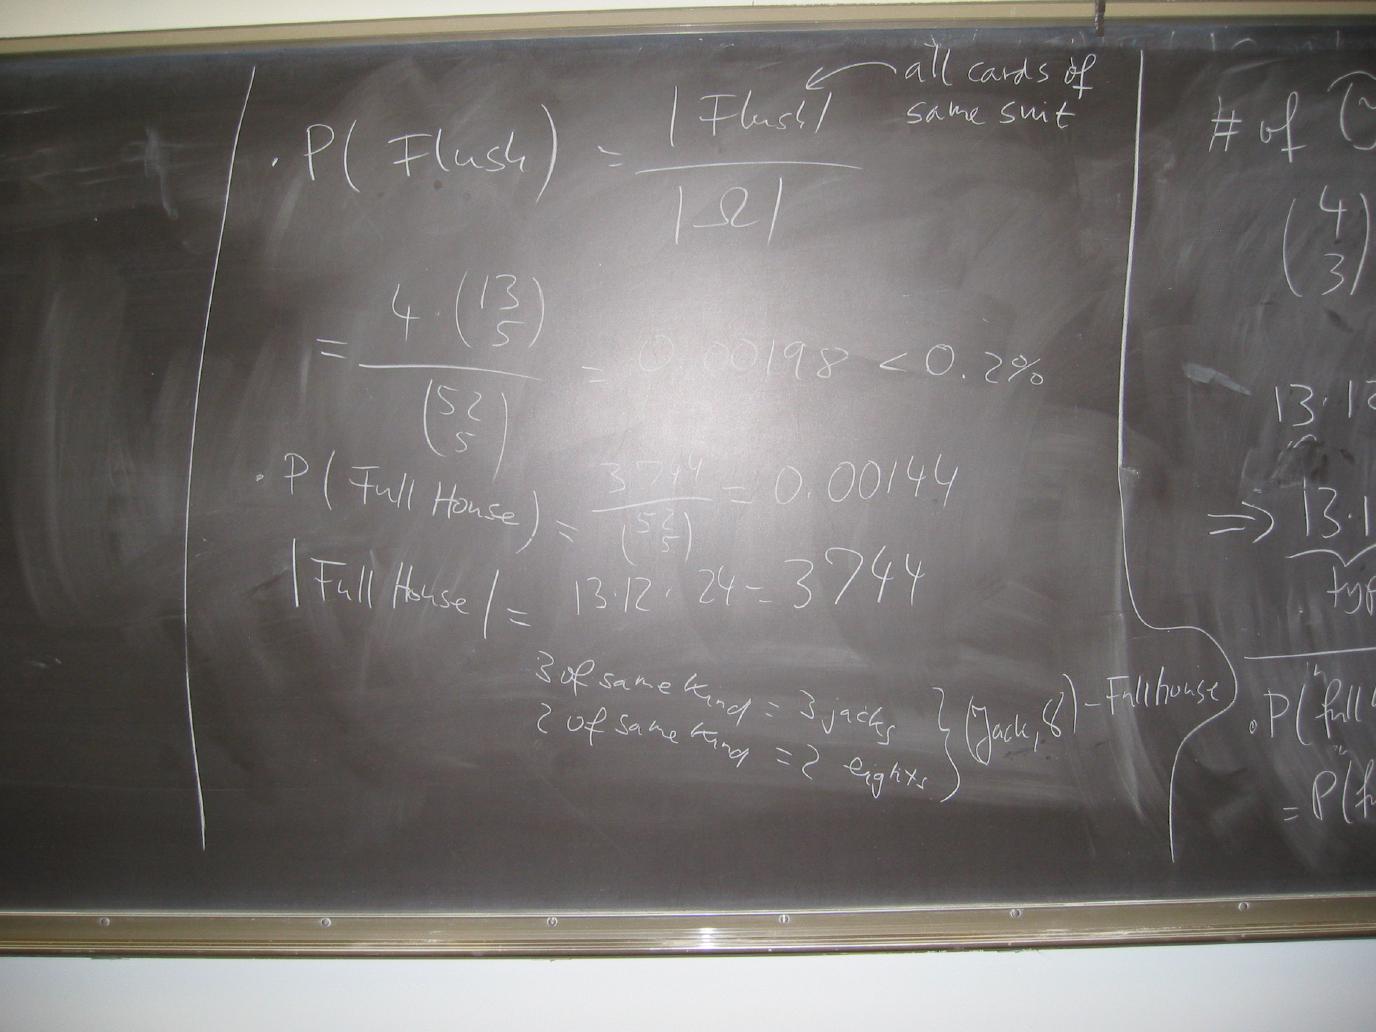 all cards of
same suit
· P( Flush ) = |Flush| / |Ω|
= 4 · (13 5) / (52 5) = 0.00198 < 0.2%
· P( Full House ) = 3744 / (52 5) = 0.00144
|Full House| = 13·12 · 24 = 3744
3 of same kind = 3 jacks
2 of same kind = 2 eights } (Jack, 8) - Full house
# of (
(4 3)
13·12
⇒ 13·1
typ
· P("full
= P("f